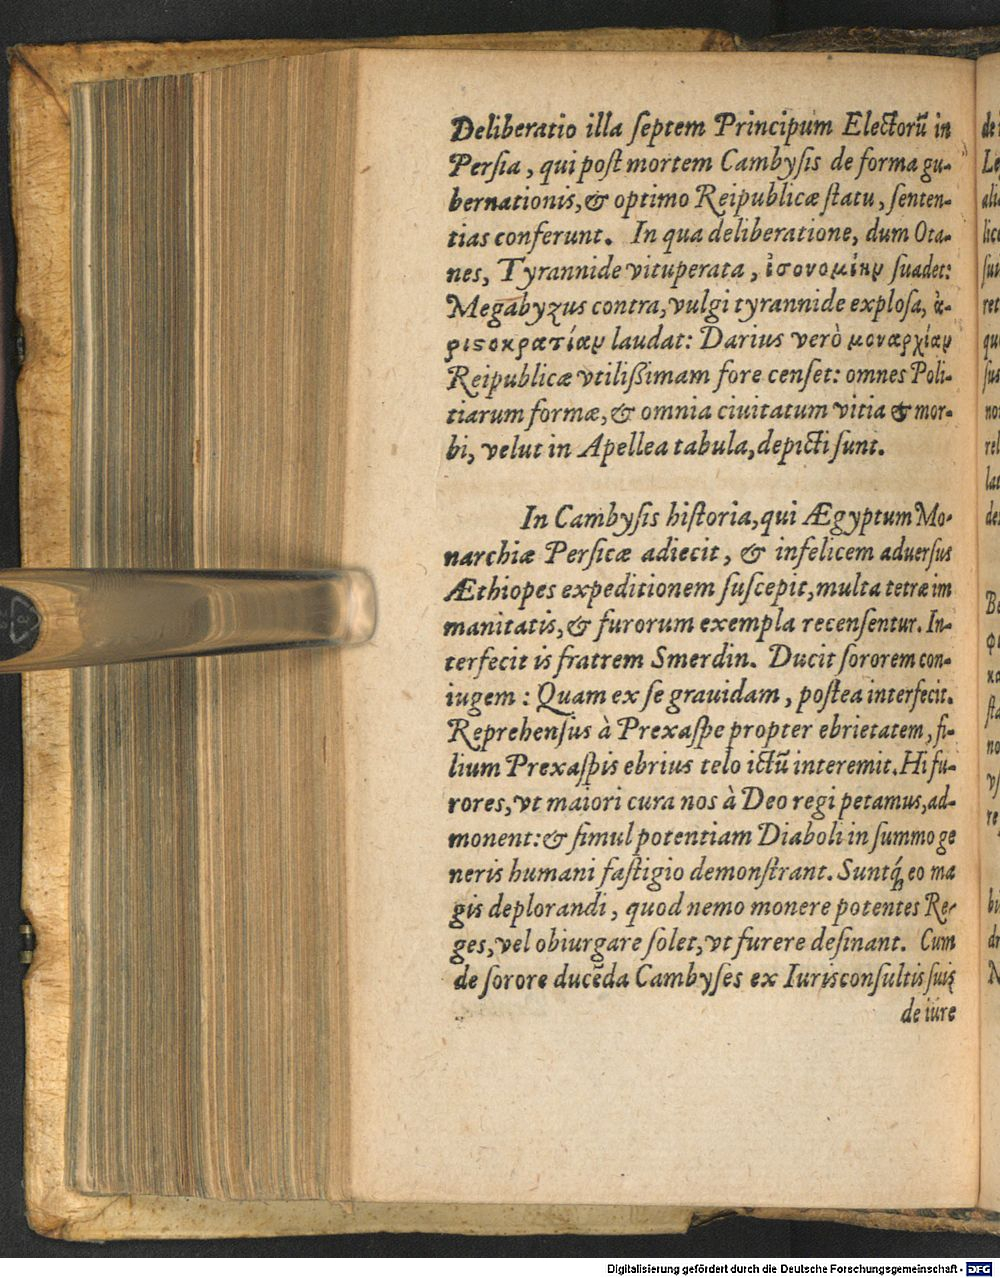 Deliberatio illa ſeptem Principum Electorũ in
Perſia, qui poſt mortem Cambyſis de forma gu-
bernationis, & optimo Reipublicæ ſtatu, ſenten-
tias conferunt. In qua deliberatione, dum Ota-
nes, Tyrannide vituperata, ἰσονομίην ſuadet:
Megabyzus contra, vulgi tyrannide exploſa, ἀ-
ριϛοκρατίαν laudat: Darius verò μοναρχίαν
Reipublicæ vtilißimam fore cenſet: omnes Poli-
tiarum formæ, & omnia ciuitatum vitia & mor-
bi, velut in Apellea tabula, depicti ſunt.
In Cambyſis hiſtoria, qui Ægyptum Mo-
narchiæ Perſicæ adiecit, & infelicem aduerſus
Æthiopes expeditionem ſuſcepit, multa tetræ im
manitatis, & furorum exempla recenſentur. In-
terfecit is fratrem Smerdin. Ducit ſororem con-
iugem: Quam ex ſe grauidam, poſtea interfecit.
Reprehenſus à Prexaſpe propter ebrietatem, fi-
lium Prexaſpis ebrius telo ictũ interemit. Hi fu-
rores, vt maiori cura nos à Deo regi petamus, ad-
monent: & ſimul potentiam Diaboli in ſummo ge
neris humani faſtigio demonſtrant. Suntq́ꝫ eo ma
gis deplorandi, quod nemo monere potentes Re-
ges, vel obiurgare ſolet, vt furere deſinant. Cum
de ſorore ducẽda Cambyſes ex Iurisconſultis ſuis
de iure
Digitalisierung gefördert durch die Deutsche Forschungsgemeinschaft - DFG